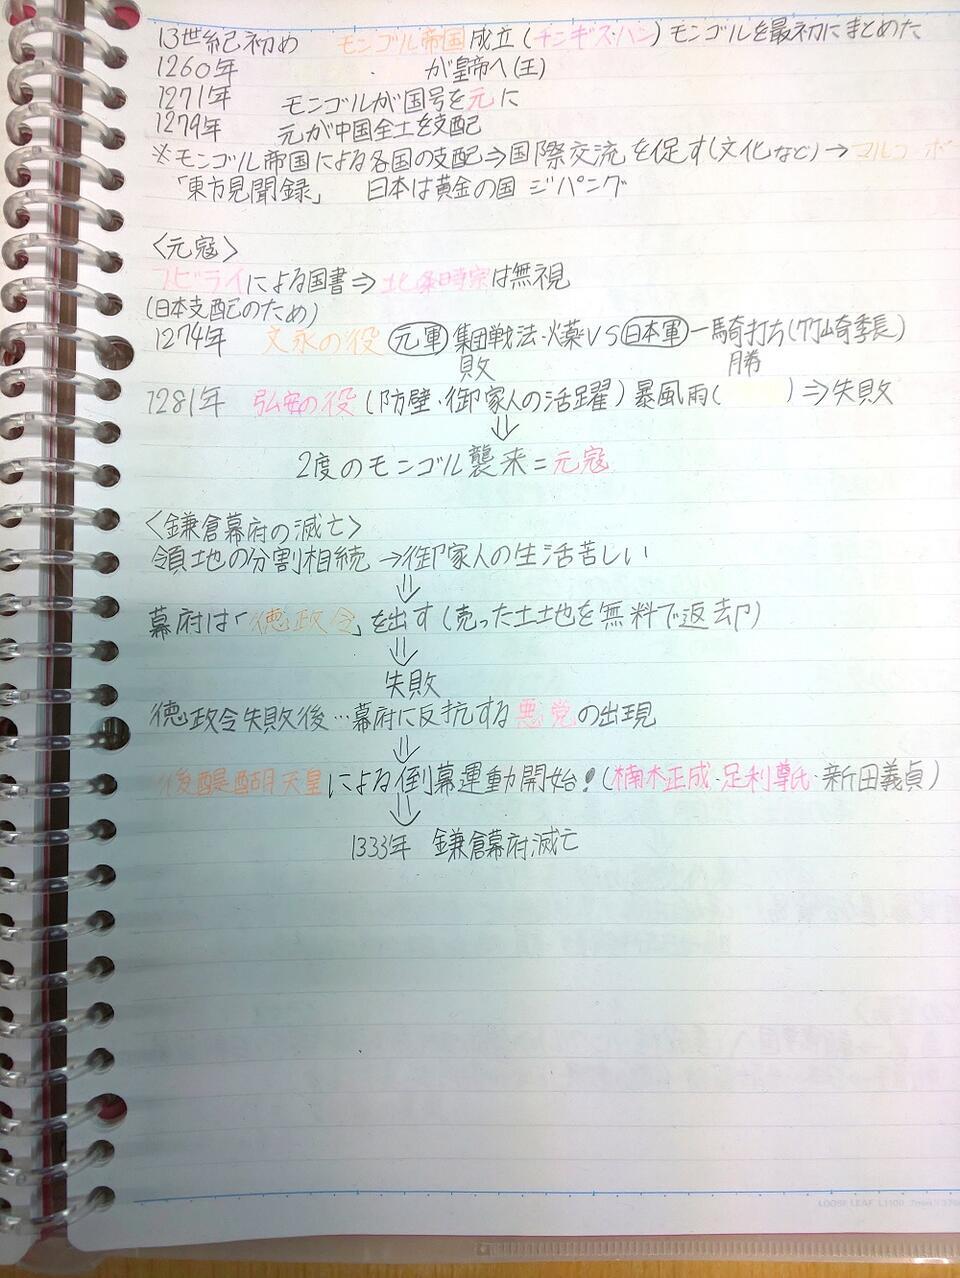 13世紀初め モンゴル帝国成立(チンギス・ハン)モンゴルを最初にまとめた
1260年 が皇帝へ(王)
1271年 モンゴルが国号を元に
1279年 元が中国全土を支配
※モンゴル帝国による各国の支配⇒国際交流を促す(文化など)→マルコ・ポ
「東方見聞録」 日本は黄金の国 ジパング
〈元寇〉
フビライによる国書⇒北条時宗は無視
(日本支配のため)
1274年 文永の役 元軍 集団戦法・火薬VS日本軍 一騎打方(竹崎季長)
敗 勝
1281年 弘安の役(防壁・御家人の活躍)暴風雨( )⇒失敗
⇓
2度のモンゴル襲来=元寇
〈鎌倉幕府の滅亡〉
領地の分割相続→御家人の生活苦しい
⇓
幕府は「徳政令」を出す(売った土地を無料で返却)
⇓
失敗
徳政令失敗後…幕府に反抗する悪党の出現
⇓
後醍醐天皇による倒幕運動開始!(楠木正成・足利尊氏・新田義貞)
⇓
1333年 鎌倉幕府滅亡